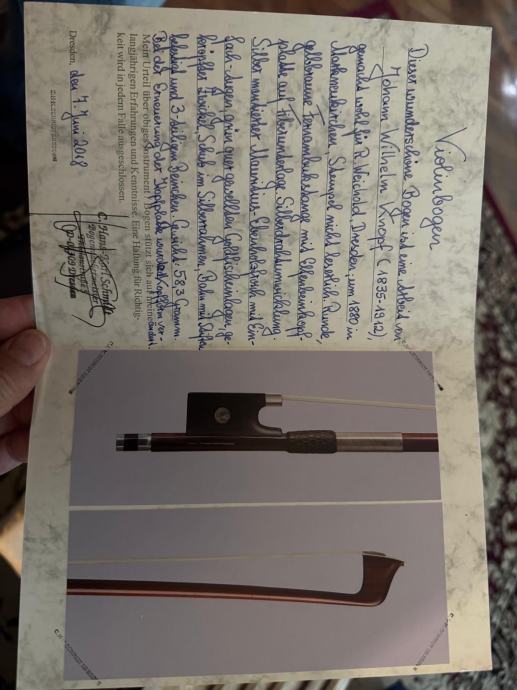 Violinbogen
Dieser wunderschöne Bogen ist eine Arbeit von
Johann Wilhelm Knopf (1835-1912),
gemacht wohl für R. Weichold Dresden, um 1880 in
Markneukirchen. Stempel nicht leserlich. Runde,
gelbbraune Fernambukstange mit Elfenbeinkopf-
platte auf Fibrunterlage. Silberdrahtumwicklung.
Silber montierter, Ebenholzfrosch mit Ein-
fach-Augen, grün
Schub im Silberrahmen, Bahn mit
und 3-teiligem Beinchen. Gewicht: 58,3 Gramm.
Bei der Erneuerung der Kopfplatte wurde
Mein Urteil über obiges Instrument/Bogen stützt sich auf meine
langjährigen Erfahrungen und Kenntnisse. Eine Haftung für Richtig-
keit wird in jedem Falle ausgeschlossen.
Dresden, den 7. Juni 2018
C. Hans-Karl Schmidt